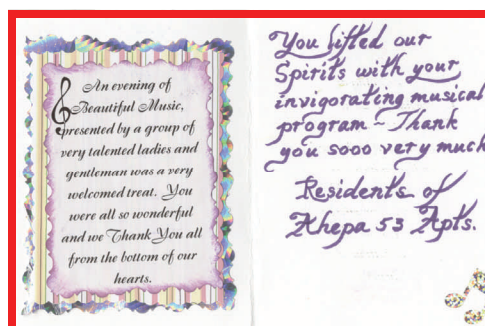 An evening of
Beautiful Music,
presented by a group of
very talented ladies and
gentleman was a very
welcomed treat. You
were all so wonderful
and we Thank You all
from the bottom of our
hearts.
You lifted our
Spirits with your
invigorating musical
program - Thank
you sooo very much
Residents of
Ahepa 53 Apts.